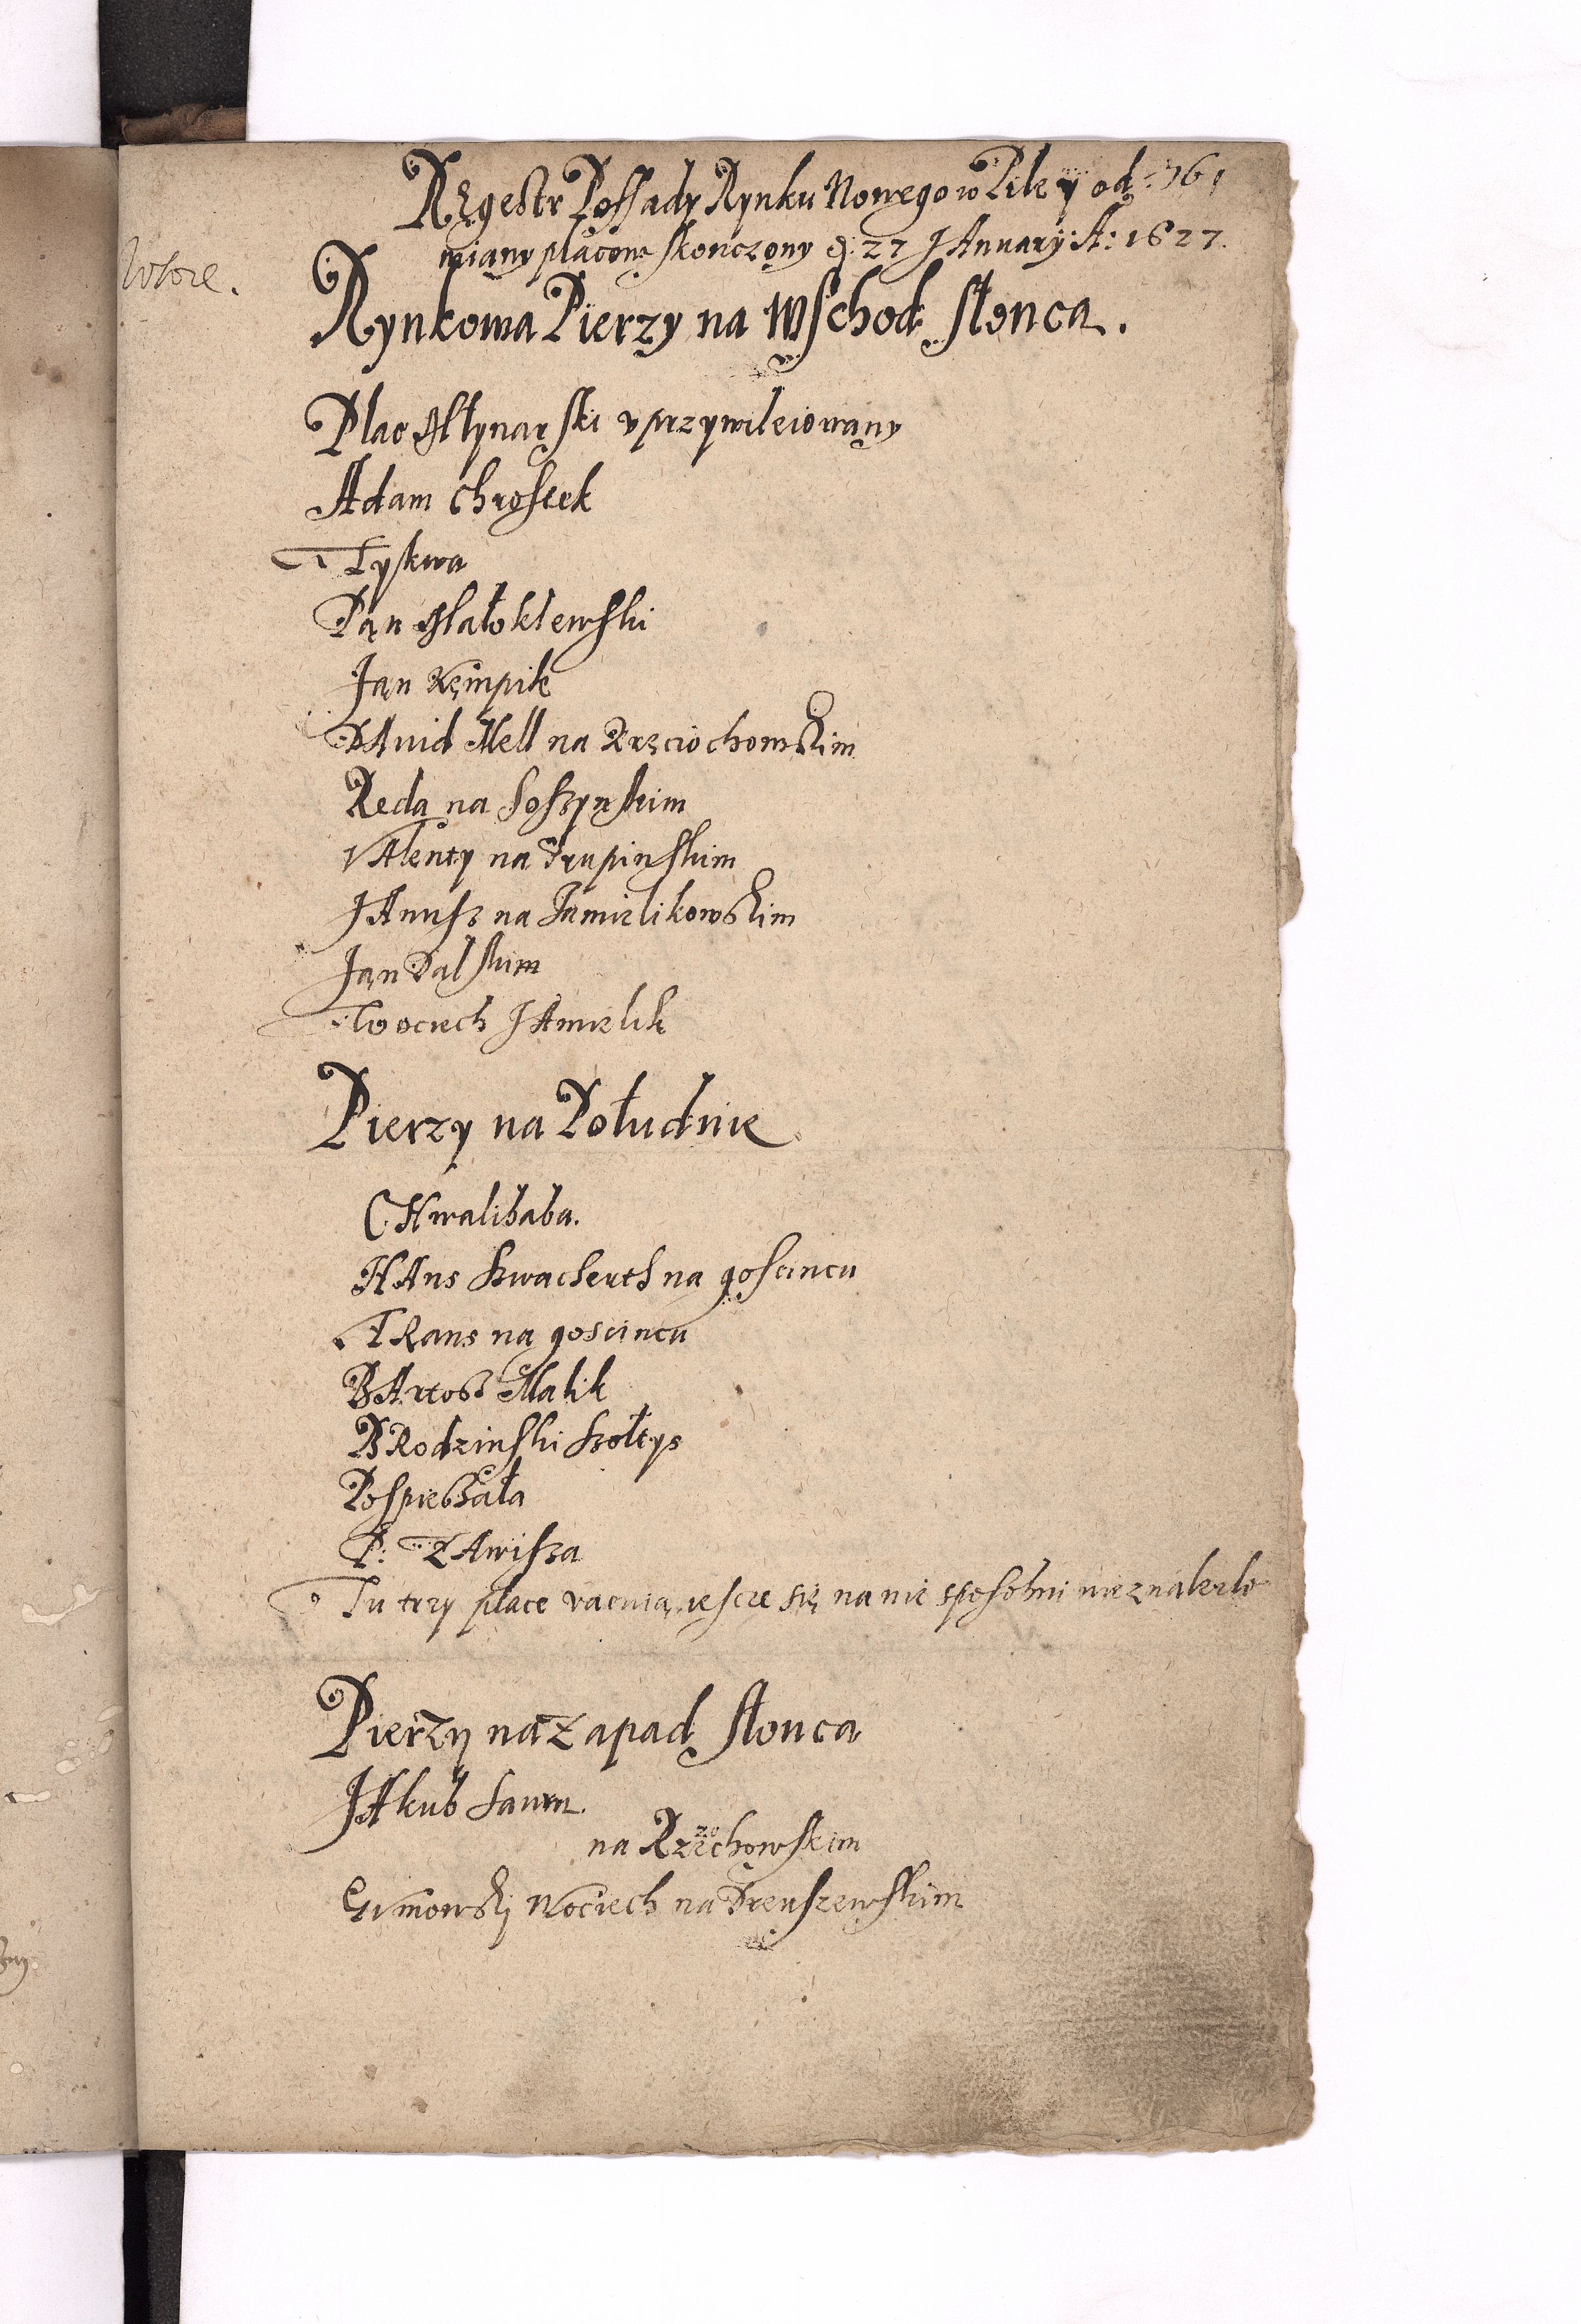 Regestr Possady Rynku Nowego w Pile y od:
miany placow skonczony d: 27 JAnuary: A: 1627.
Rynkowa Pierzy na Wschod słonca.
Plac Młynarski uprzywileiowany
Adam Chrostek
Tyskwa
Pan Małoklewski
Jan Kempik
DAvid Mell na Krzciochowskim
Reda na Soszynskim
VAlenty na Trupinskim
JAnusz na Jamielikowskim
Jan Dalskim
Woociech JAmielik
Pierzy na Południe
CHwalibaba.
HAns Szwacherth na goscincu
TRans na goscincu
BArtosz Malik
BRodzinski Szołtys
Pospieszała
P: ZAwisza
Tu trzy place vacuią iescze się na nie sposobni nieznalezlo
Pierzy na Zapad słonca
JAkub Saum.
na Rzechowskim
Wociech na Dreuszewskim